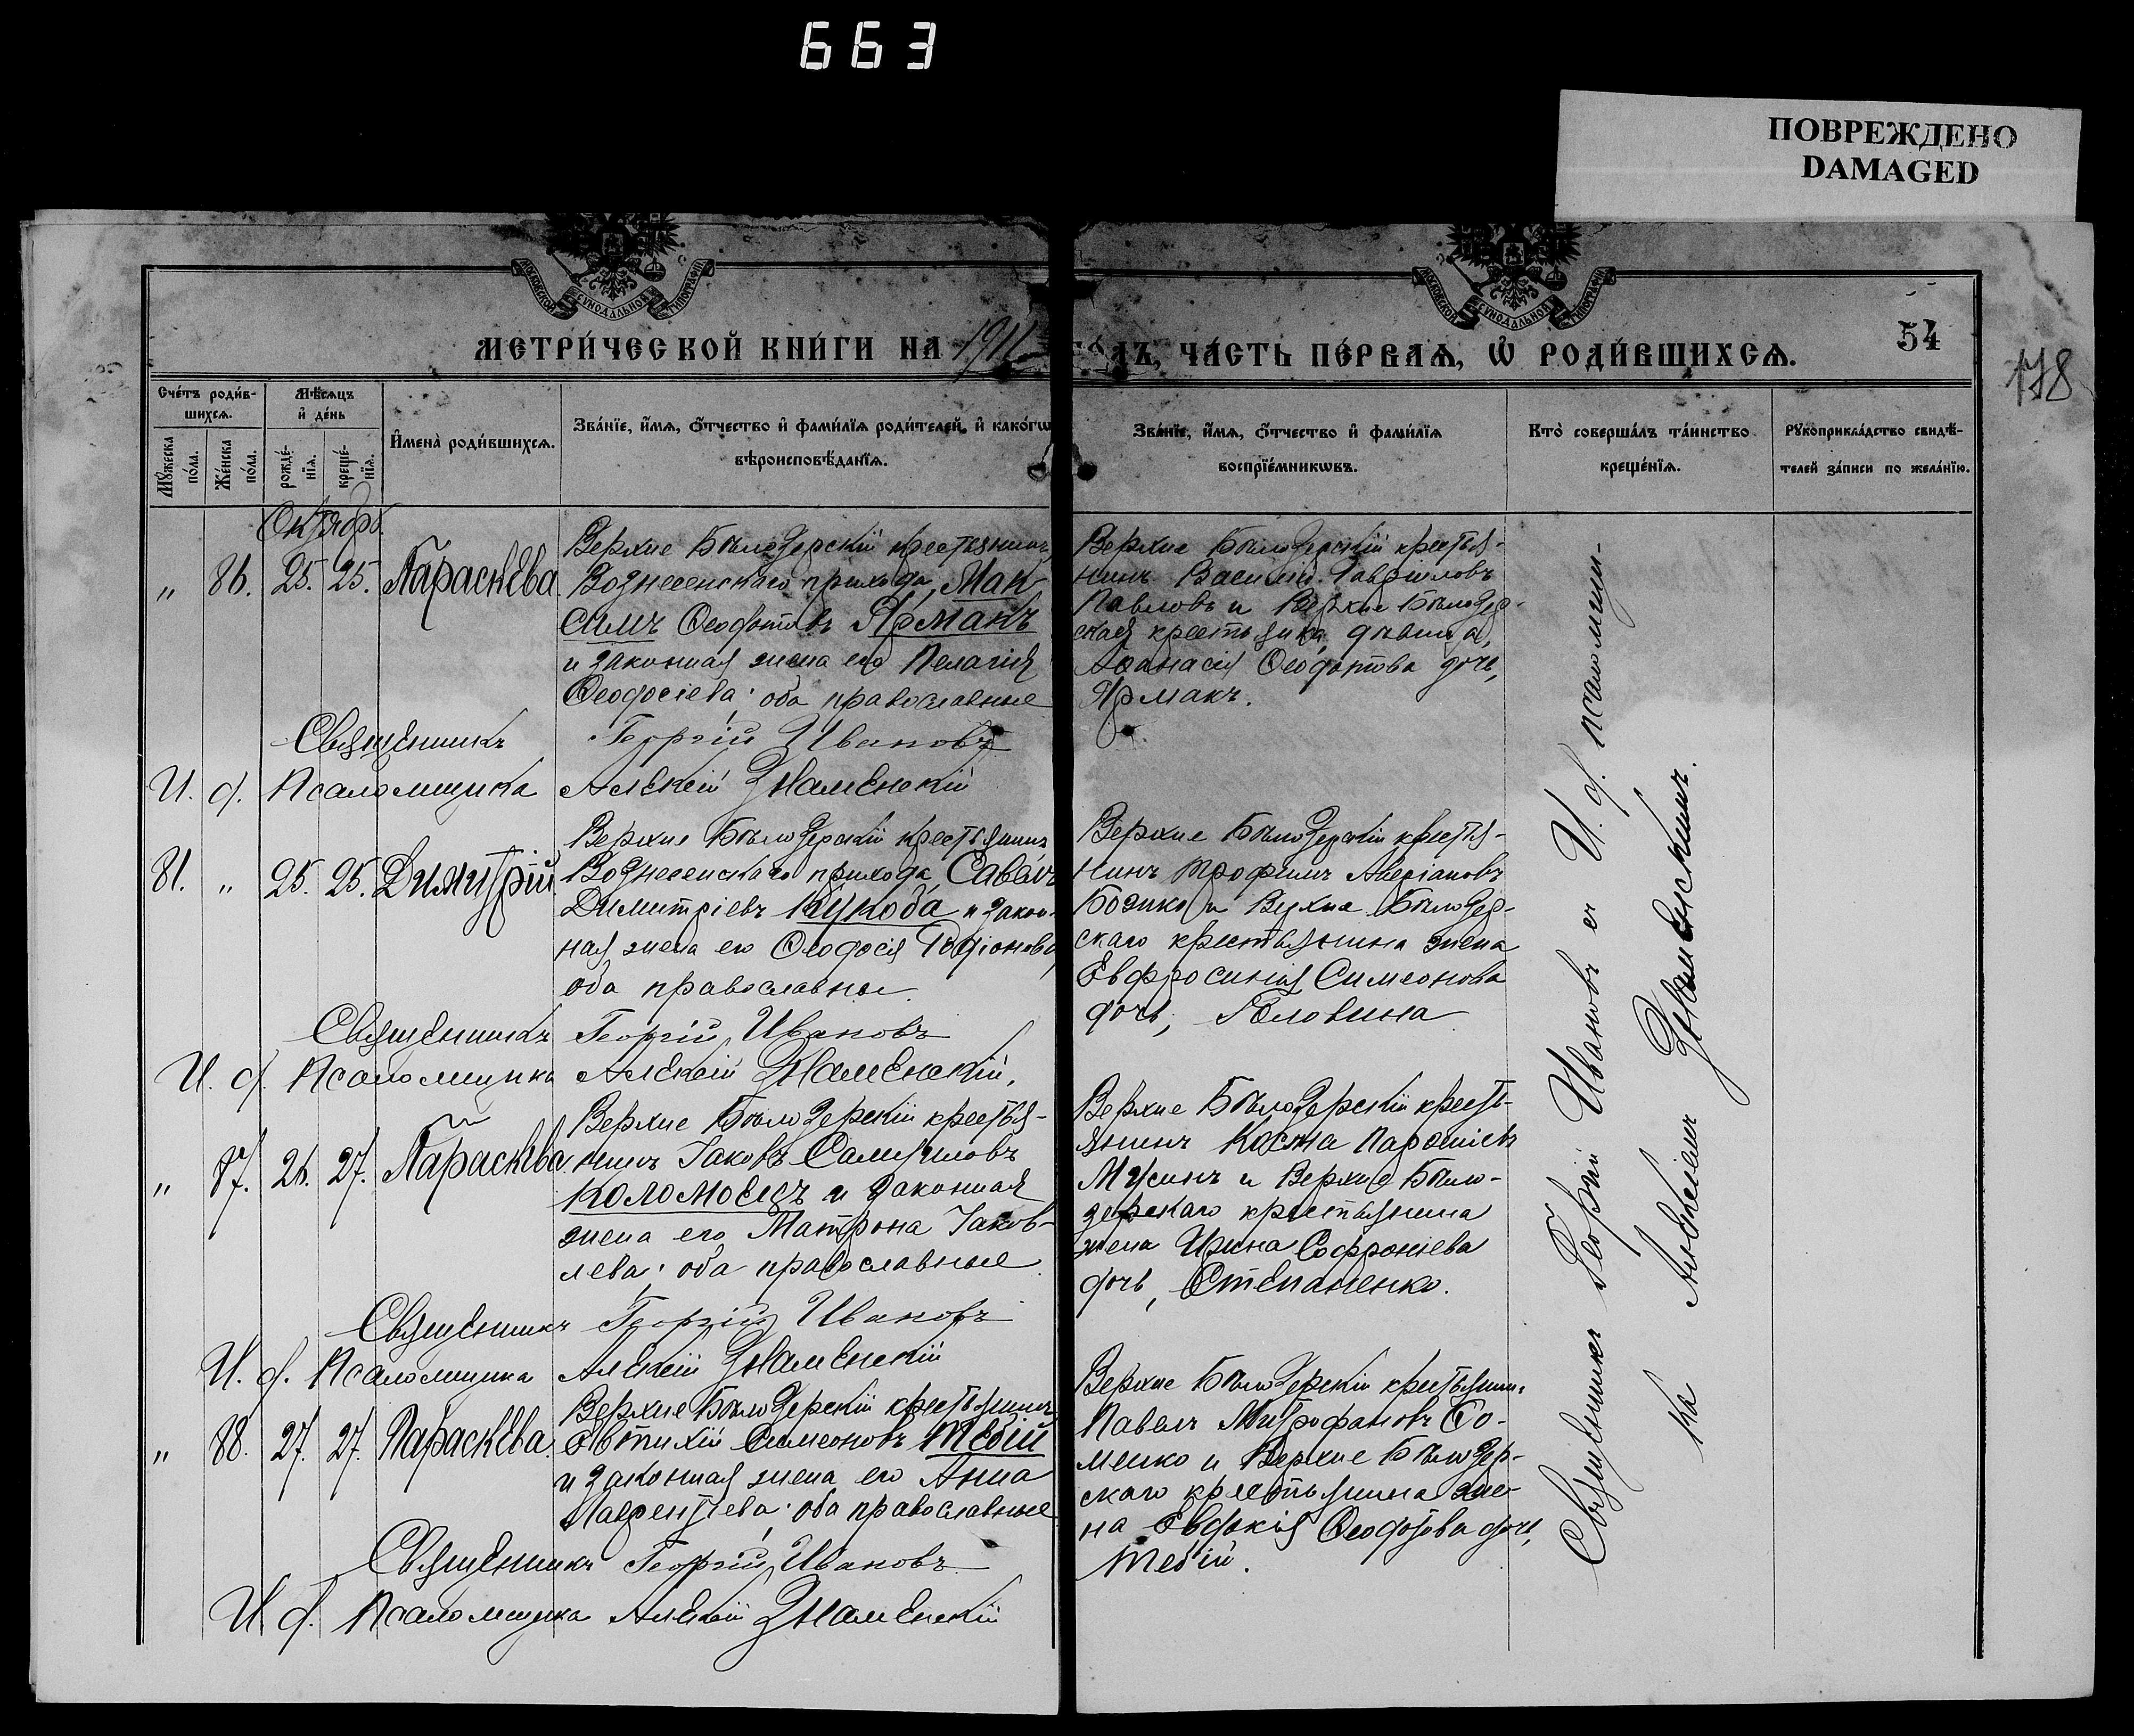 663
ПОВРЕЖДЕНО
DAMAGED
МОСКОВСКОЙ СУНОДАЛЬНОЙ ТИПОГРАФІИ
МОСКОВСКОЙ СУНОДАЛЬНОЙ ТИПОГРАФІИ
МЕТРИ́ЧЕСКОЙ КНИ́ГИ НА 1911 ГО́ДЪ, ЧА́СТЬ ПЕ́РВАѦ, Ѡ РОДИ́ВШИХСѦ.
54
178
Сче́тъ роди́в-
шихсѧ.
Мѣ́сѧцъ
и де́нь
Мꙋ́жеска
по́ла.
Же́нска
по́ла.
рожде́-
нїѧ.
креще́-
нїѧ.
Имена̀ роди́вшихсѧ.
Зва́нїе, и́мѧ, о́тчество и фами́лїѧ роди́телей, и како́гѡ
вѣроисповѣ́данїѧ.
Зва́нїе, и́мѧ, о́тчество и фами́лїѧ
воспрїе́мникѡвъ.
Кто̀ соверша́лъ та́инство
креще́нїѧ.
Рꙋкоприкла́дство свидѣ́-
телей за́писи по жела́нїю.
Октябрь.
„ 86. 25. 25. Параскева.
Верхне Бѣлозерскій крестьянинъ,
Вознесенскаго прихода, Мак-
симъ Ѳеодотовъ Ярмакъ
и законная жена его Пелагія
Ѳеодосіева; оба православные
Верхне Бѣлозерскій крестья-
нинъ Василій Гавріиловъ
Павловъ и Верхне Бѣлозер-
ская крестьянка, дѣвица,
Аѳанасія Ѳеодотова дочь,
Ярмакъ.
Священникъ Георгій Ивановъ
И. д. Псаломщика Алексій Знаменскій
81. „ 25. 25. Димитрій.
Верхне Бѣлозерскій крестьянинъ
Вознесенскаго прихода, Савелъ
Димитріевъ Кукоба и закон-
ная жена его Ѳеодосія Родіонова,
оба православны.
Верхне Бѣлозерскій крестья-
нинъ Трофимъ Аверіановъ
Бозико и Верхне Бѣлозер-
скаго крестьянина жена
Евфросинія Симеонова
дочь, Головина
Священникъ Георгій Ивановъ
И. д. Псаломщика Алексій Знаменскій.
„ 87. 26. 27. Параскева
Верхне Бѣлозерскій крестья-
нинъ Іаковъ Самуиловъ
Коломоецъ и законная
жена его Матрона Іаков-
лева; оба православные
Верхне Бѣлозерскій кресть-
янинъ Косма
Мусинъ и Верхне Бѣло-
зерскаго крестьянина
жена Ирина Софроніева
дочь, Степаненко.
Священникъ Георгій Ивановъ
И. д. Псаломщика Алексій Знаменскій
„ 88. 27. 27. Параскева.
Верхне Бѣлозерскій крестьянинъ
Евтихій Симеоновъ Тебій
и законная жена его Анна
Лаврентіева; оба православные
Верхне Бѣлозерскій крестьянинъ
Павелъ Митрофановъ Со-
менко и Верхне Бѣлозер-
скаго крестьянина же-
на Евдокія Ѳеодотова дочь,
Тебій.
Священникъ Георгій Ивановъ
И. д. Псаломщика Алексій Знаменскій
Священникъ Георгій Ивановъ съ И. д. псаломщи-
ка Алексіемъ Знаменскимъ.